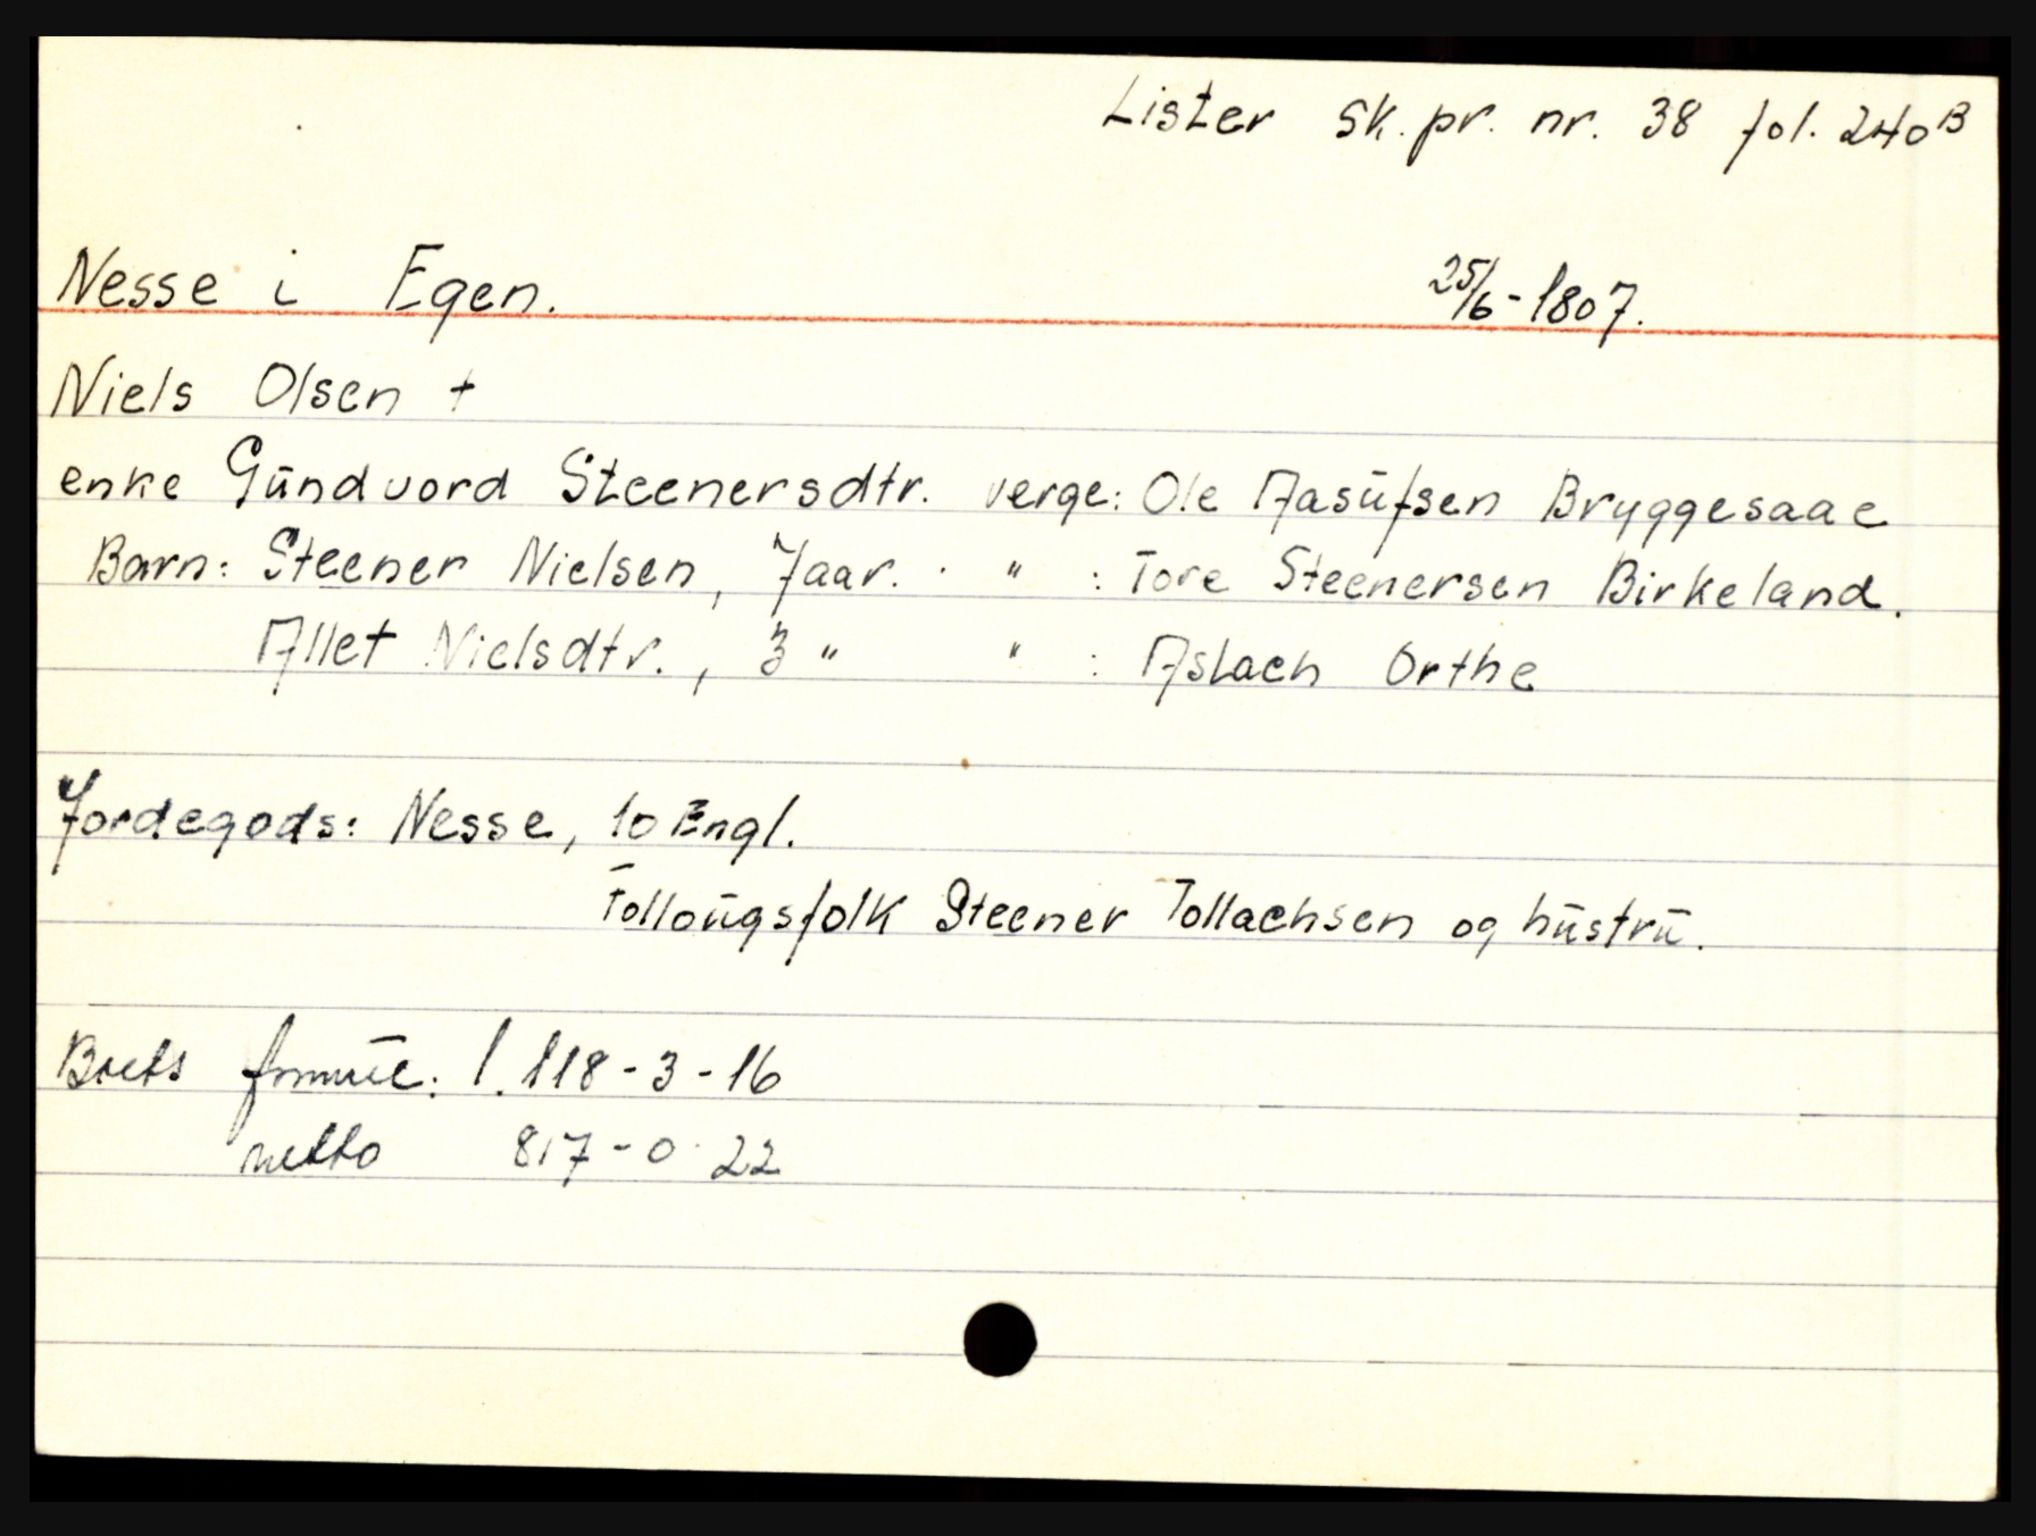 Lister sk. pr. nr. 38 fol. 240 B
Nesse i Egen. 25/6-1807.
Niels Olsen +
enke Gŭndvord Steenersdtr. verge: Ole Aasŭfsen Bryggesaae
Barn: Steener Nielsen, 7 aar. " : Tore Steenersen Birkeland.
Allet Nielsdtr., 3 " " : Aslach Orthe
Jordegods: Nesse, 10 Engl.
Folloŭgsfolk Steener Tollachsen og hŭstrŭ.
Boets formŭe: 1.118-3-16
netto 817-0-22